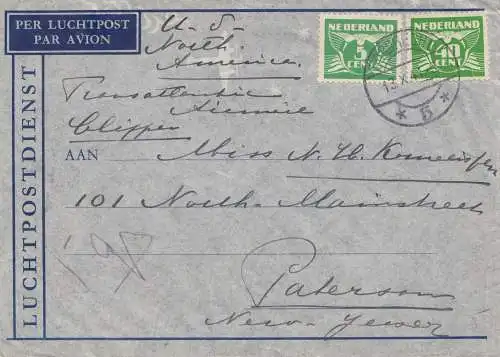 PER LUCHTPOST
PAR AVION
U.S.
North
America
NEDERLAND
5
CENT
NEDERLAND
10
CENT
Transatlantic
Airmail
Clipper
5
LUCHTPOSTDIENST
AAN
Miss N. H.
101 North-Mainstreet
Paterson
New-Jersey